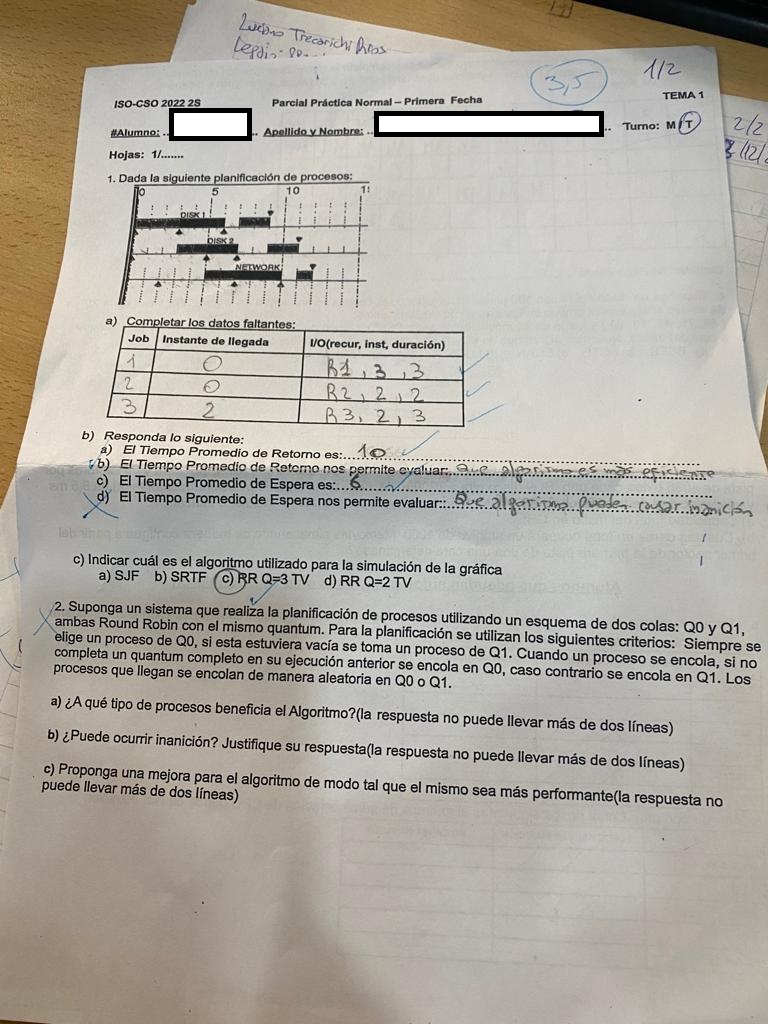 Luciano Trecarichi
Legajo:
3,5
1/2
ISO-CSO 2022 2S Parcial Práctica Normal – Primera Fecha TEMA 1
#Alumno: .. .. Apellido y Nombre: .. .. Turno: M/T
2/2
Hojas: 1/.......
1. Dada la siguiente planificación de procesos:
0 5 10
DISK 1
DISK 2
NETWORK
a) Completar los datos faltantes:
Job Instante de llegada I/O(recur, inst, duración)
1 0 R1, 3, 3
2 0 R2, 2, 2
3 2 R3, 2, 3
b) Responda lo siguiente:
a) El Tiempo Promedio de Retorno es:...10
b) El Tiempo Promedio de Retorno nos permite evaluar: Que algoritmo es más eficiente
c) El Tiempo Promedio de Espera es:...6
d) El Tiempo Promedio de Espera nos permite evaluar:: Que algoritmo pueden causar inanición
c) Indicar cuál es el algoritmo utilizado para la simulación de la gráfica
a) SJF b) SRTF c) RR Q=3 TV d) RR Q=2 TV
2. Suponga un sistema que realiza la planificación de procesos utilizando un esquema de dos colas: Q0 y Q1,
ambas Round Robin con el mismo quantum. Para la planificación se utilizan los siguientes criterios: Siempre se
elige un proceso de Q0, si esta estuviera vacía se toma un proceso de Q1. Cuando un proceso se encola, si no
completa un quantum completo en su ejecución anterior se encola en Q0, caso contrario se encola en Q1. Los
procesos que llegan se encolan de manera aleatoria en Q0 o Q1.
a) ¿A qué tipo de procesos beneficia el Algoritmo?(la respuesta no puede llevar más de dos líneas)
b) ¿Puede ocurrir inanición? Justifique su respuesta(la respuesta no puede llevar más de dos líneas)
c) Proponga una mejora para el algoritmo de modo tal que el mismo sea más performante(la respuesta no
puede llevar más de dos líneas)